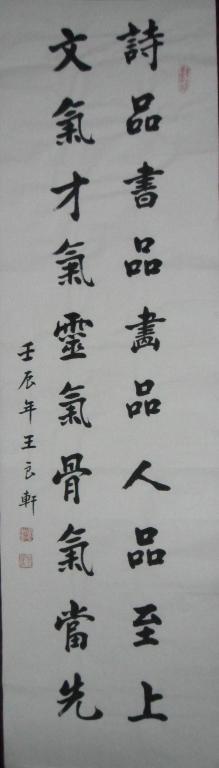 詩品書品畫品人品至上
文氣才氣靈氣骨氣當先
壬辰年王良軒